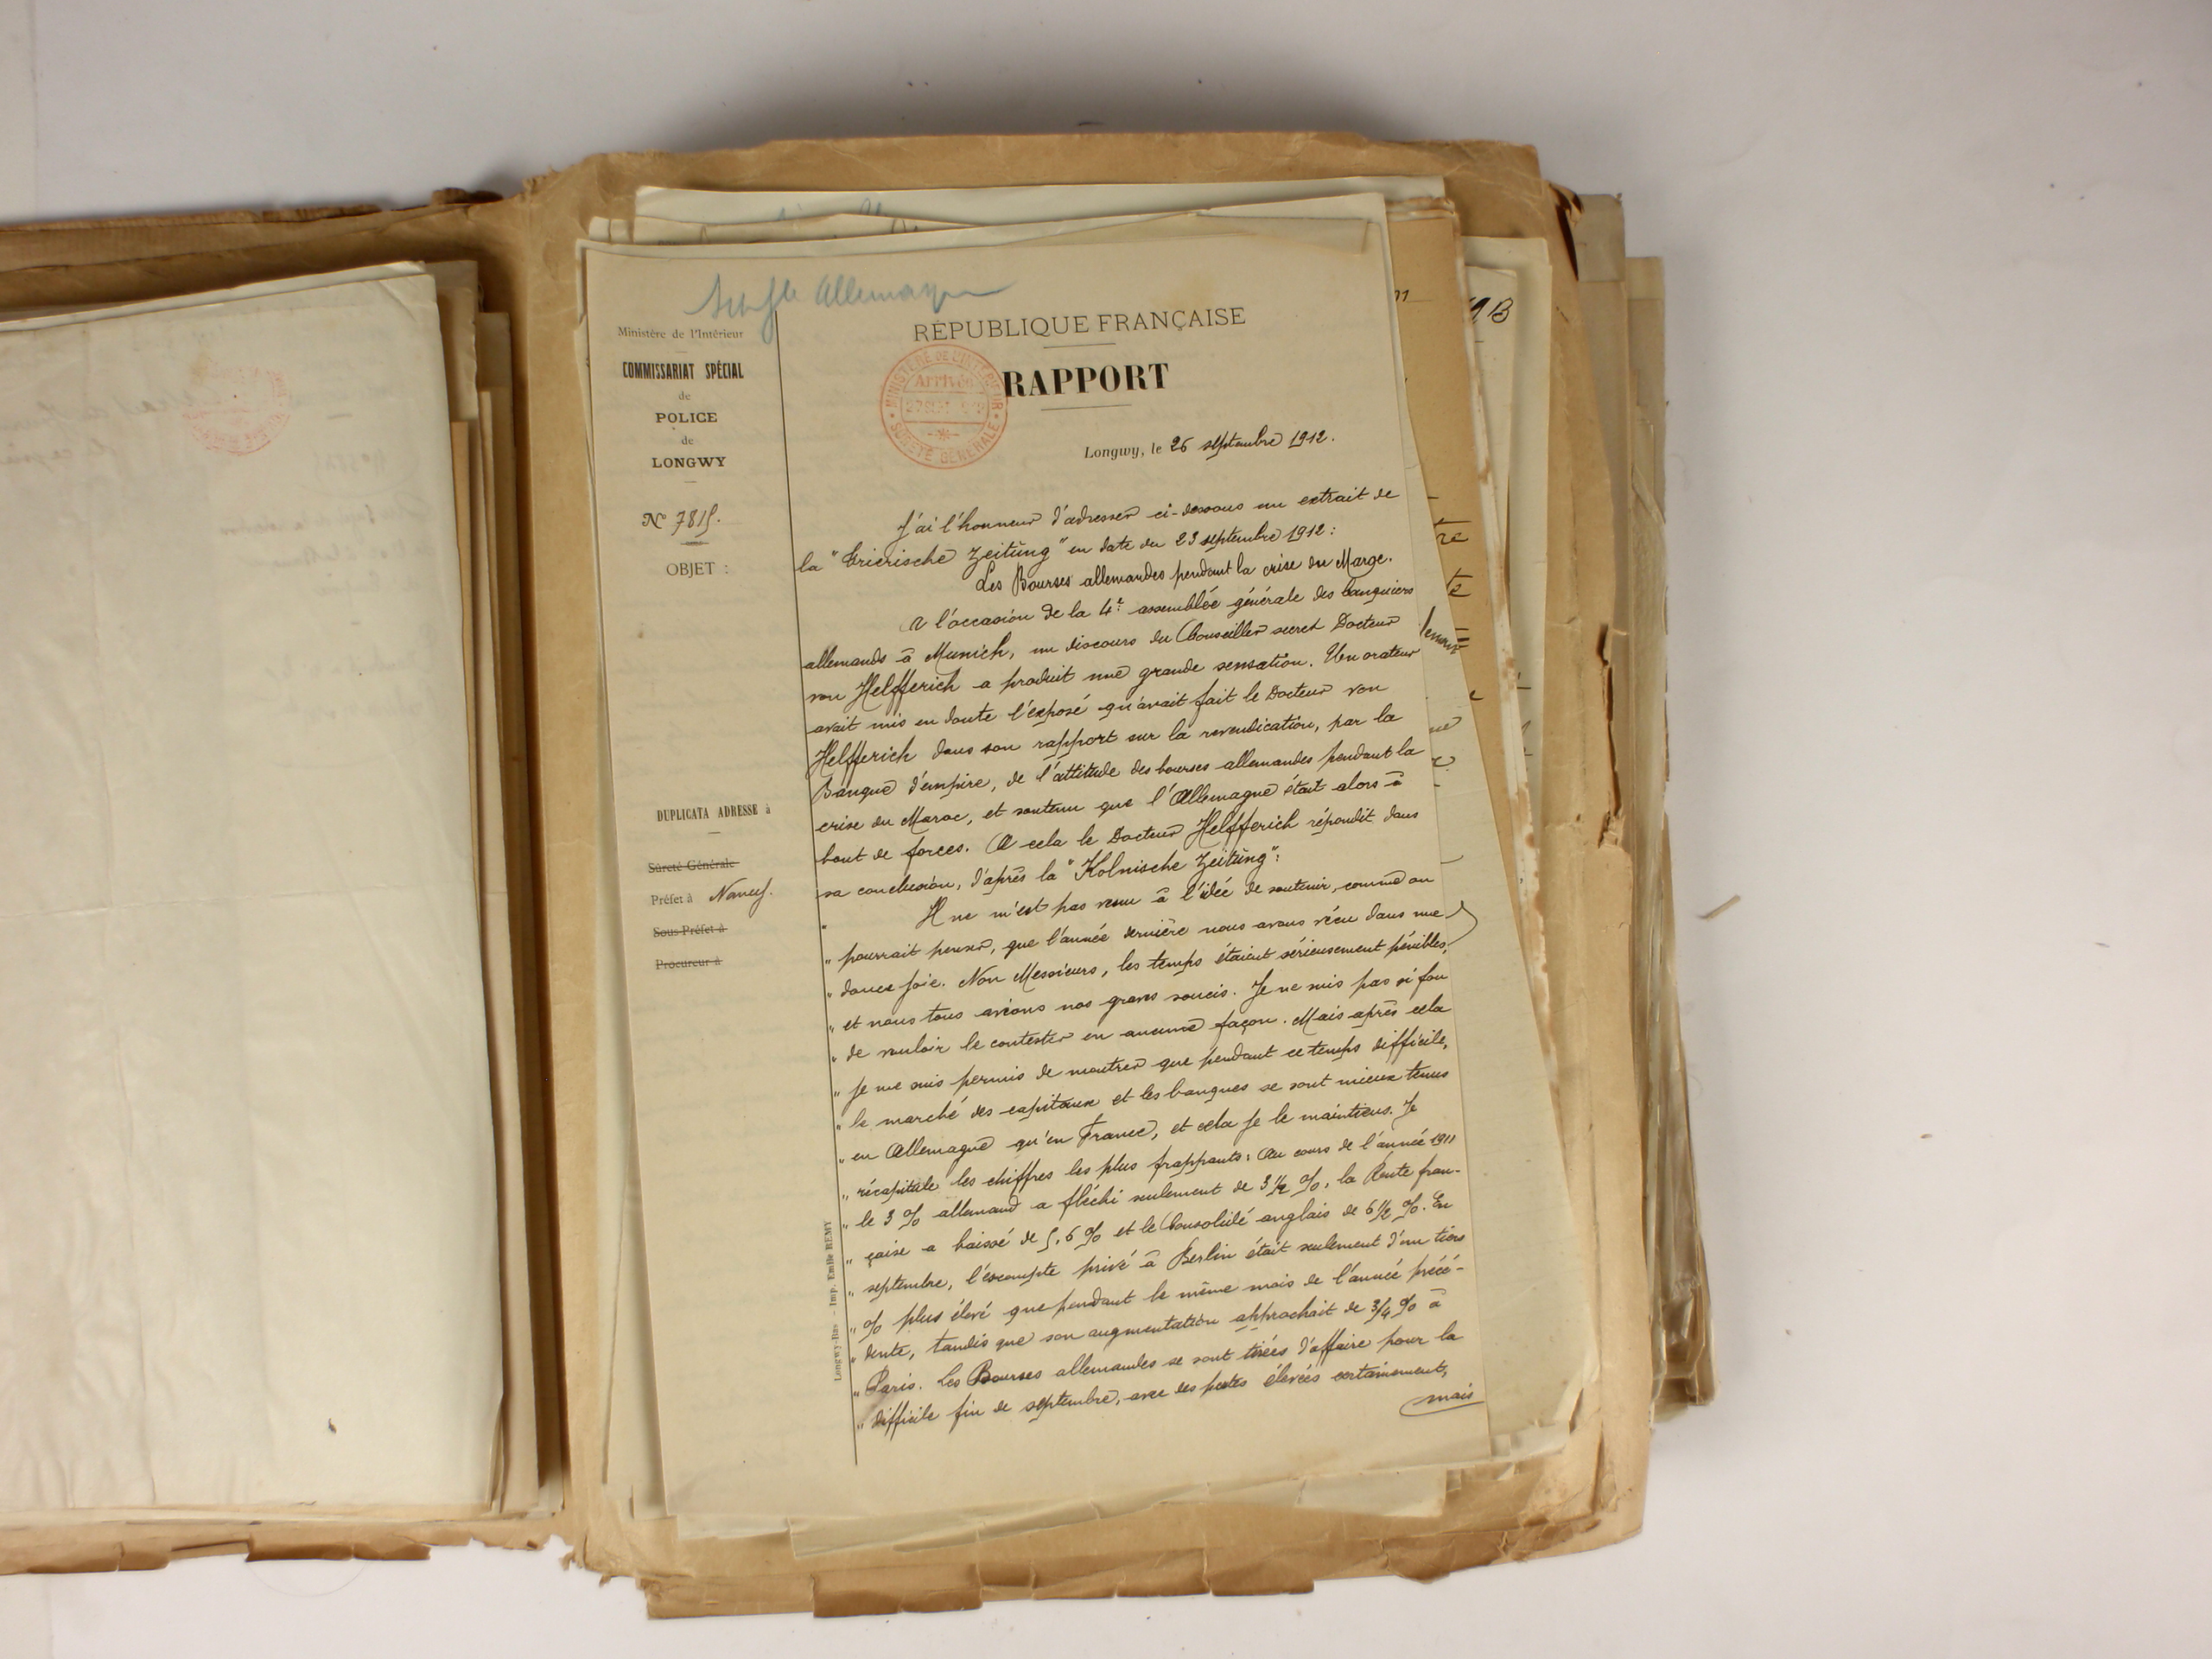 Allemagne
Ministère de l'Intérieur
COMMISSARIAT SPÉCIAL
de
POLICE
de
LONGWY
N° 7815.
OBJET :
DUPLICATA ADRESSE à
Sûreté Générale
Préfet à Nancy.
Sous-Préfet à
Procureur à
Longwy-Bas - Imp. Emile REMY
RÉPUBLIQUE FRANÇAISE
RAPPORT
MINISTÈRE DE L'INTÉRIEUR
Arrivée
SÛRETÉ GÉNÉRALE
Longwy, le 26 septembre 1912.
J'ai l'honneur d'adresser ci-dessous un extrait de
la "Trierische Zeitung" en date du 23 septembre 1912 :
Les Bourses allemandes pendant la crise du Maroc.
A l'occasion de la 4e assemblée générale des banquiers
allemands à Munich, un discours du Conseiller secret Docteur
von Helfferich a produit une grande sensation. Un orateur
avait mis en doute l'exposé qu'avait fait le Docteur von
Helfferich dans son rapport sur la revendication, par la
Banque d'empire, de l'attitude des bourses allemandes pendant la
crise du Maroc, et soutenu que l'Allemagne était alors à
bout de forces. A cela le Docteur Helfferich répondit dans
sa conclusion, d'après la "Kolnische Zeitung" :
" Il ne m'est pas venu à l'idée de soutenir, comme on
" pourrait penser, que l'année dernière nous avons vécu dans une
" douce joie. Non Messieurs, les temps étaient sérieusement pénibles,
" et nous tous avions nos graves soucis. Je ne suis pas si fou
" de vouloir le contester en aucune façon. Mais après cela
" je me suis permis de montrer que pendant ce temps difficile,
" le marché des capitaux et les banques se sont mieux tenus
" en Allemagne qu'en France, et cela je le maintiens. Je
" récapitule les chiffres les plus frappants : Au cours de l'année 1911
" le 3 % allemand a fléchi seulement de 3 1/2 %, la Rente fran-
" çaise a baissé de 5,6 % et le Consolidé anglais de 6 1/2 %. En
" septembre, l'escompte privé à Berlin était seulement d'un tiers
" % plus élevé que pendant le même mois de l'année précé-
" dente, tandis que son augmentation approchait de 3/4 % à
" Paris. Les Bourses allemandes se sont tirées d'affaire pour la
" difficile fin de septembre, avec des pertes élevées certainement,
mais